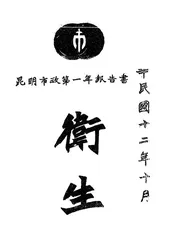 市
昆明市政第一年報告書
衛生
民國十二年十月